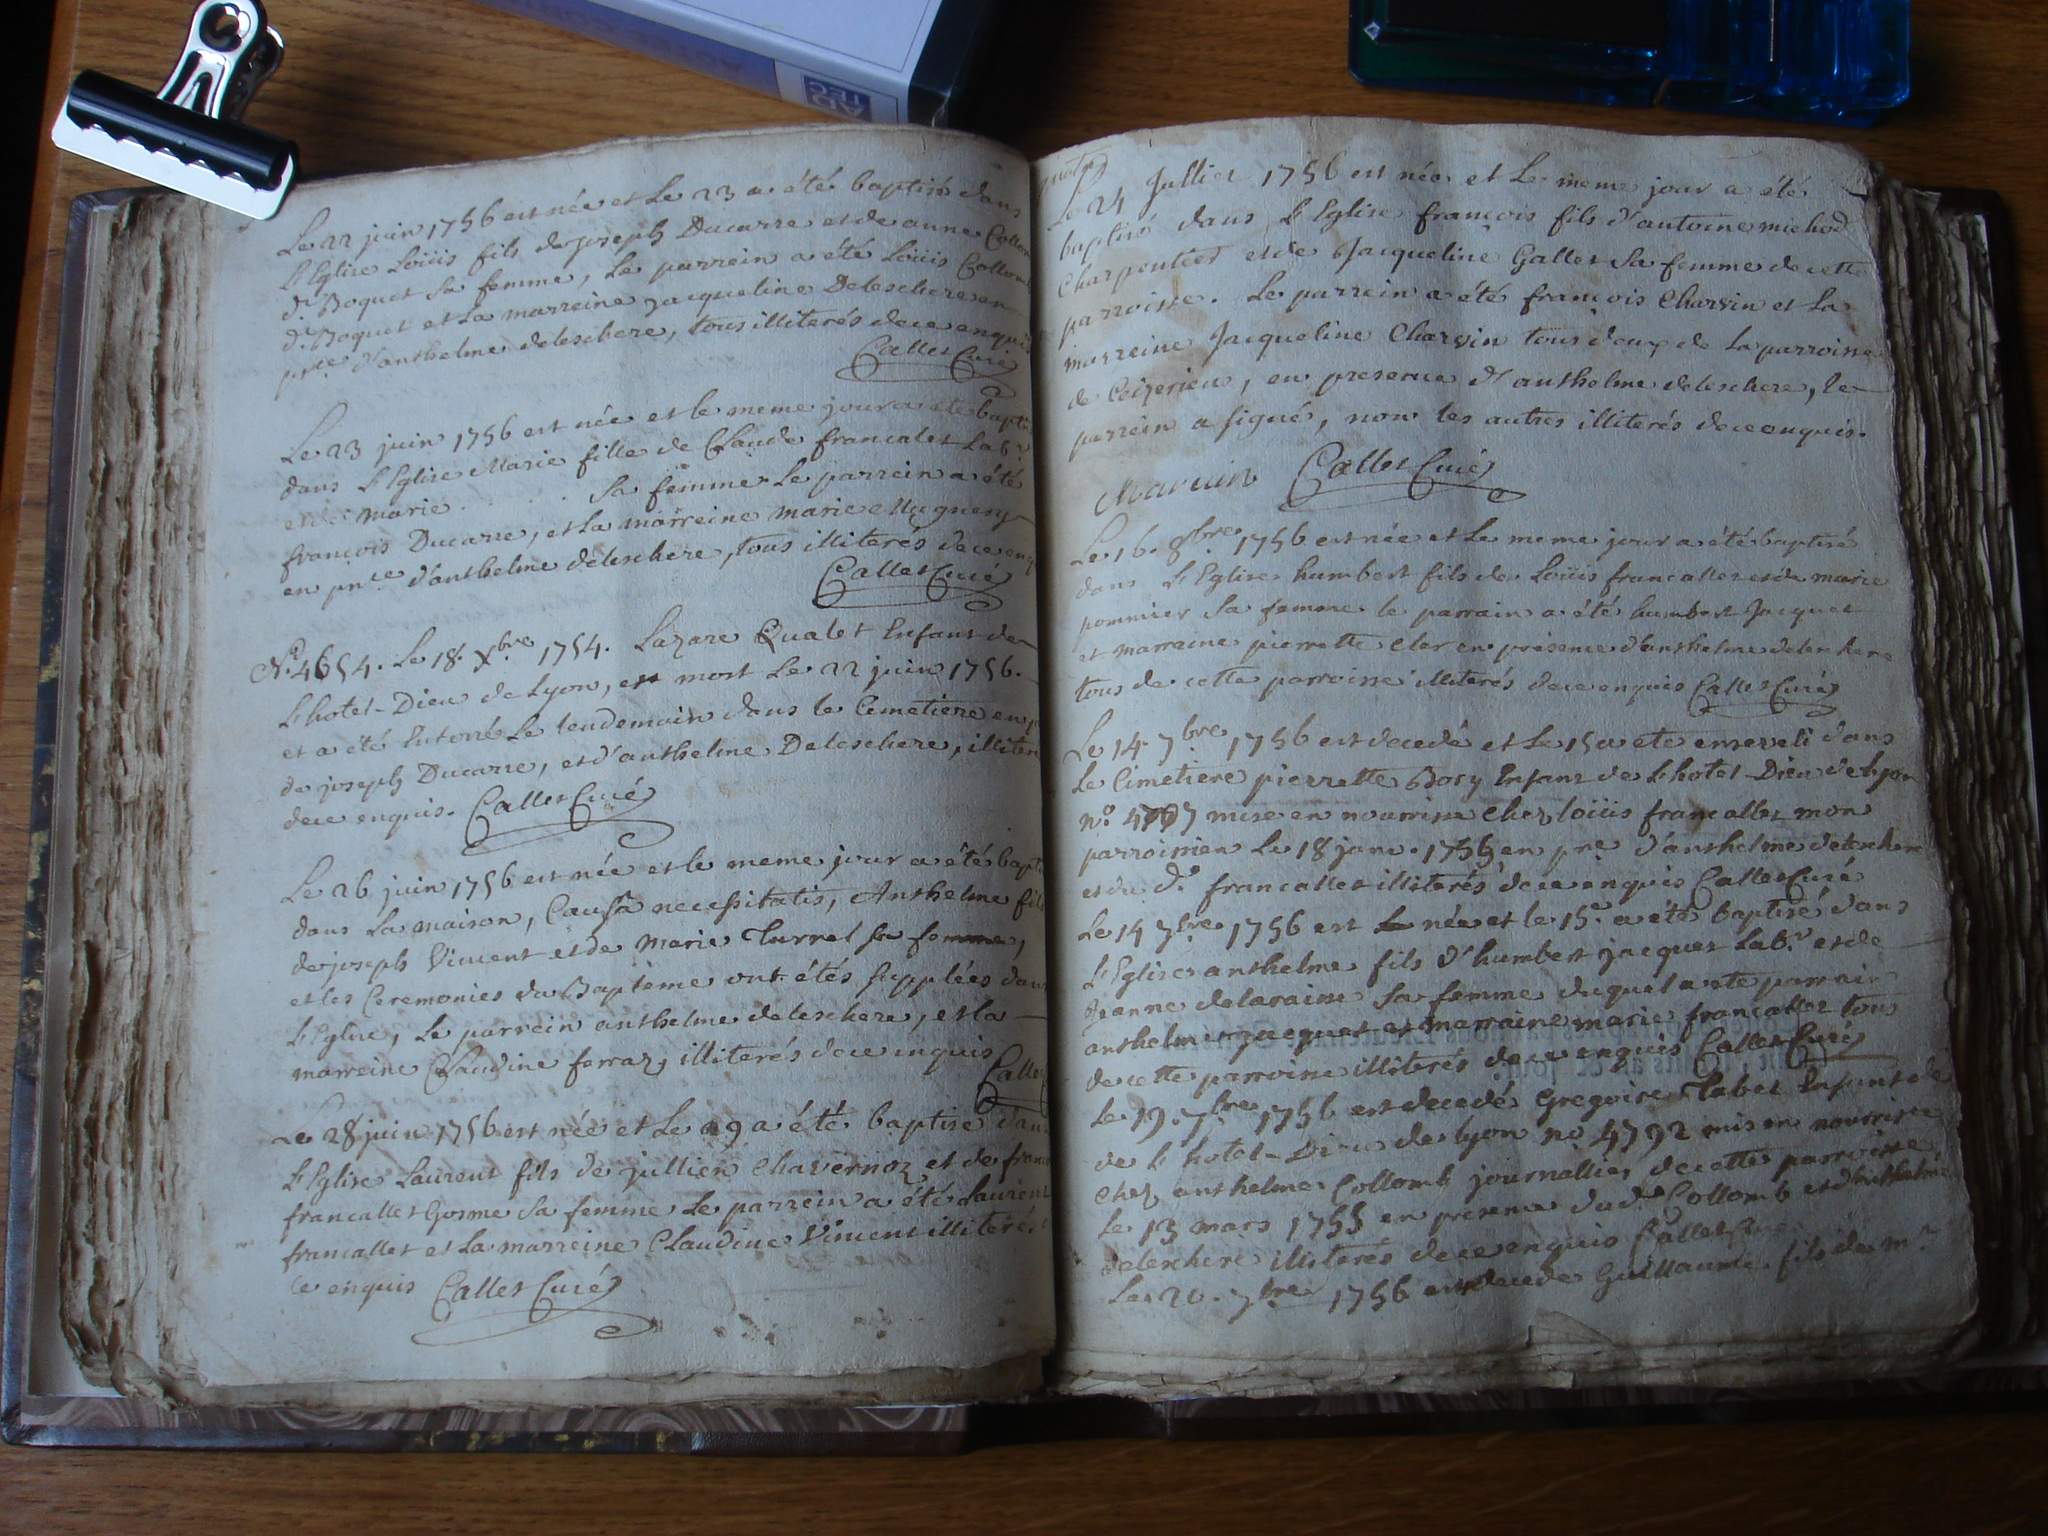 Le 22 juin 1756 est née et Le 23 a été baptisé dans
L'Eglise Loüis fils de joseph Ducarre et de anne
d. Boquet sa femme, Le parrein a été Loüis
d. Boquet et La marreine jacqueline Deleschere en
pnce d'anthelme deleschere, tous illiterés de ce enquis
Callet Curé
Le 23 juin 1756 est née et le meme jour a eté bapt
dans L'Eglise Marie fille de Claude francalet Lab.r
et de marie . . . sa femme Le parrein a été
françois Ducarre, et La marreine marie
en pnce d'anthelme deleschere, tous illiterés de ce enq
Callet Curé
N.o 4654. Le 18 Xbre 1754. Lazare Qualet Enfant de
L'hotel-Dieu de Lyon, est mort Le 22 juin 1756.
et a été Enterré Le lendemain dans le Cemetiere en p
de joseph Ducarre, et d'anthelme Deleschere, illiter
de ce enquis. Callet Curé
Le 26 juin 1756 est née et le meme jour a été bapt
dans La maison, Causâ necessitatis, Anthelme fils
de joseph Vincent et de Marie Turrel sa femme,
et les Ceremonies du Bapteme ont étés supplées dans
L'Eglise, Le parrein anthelme deleschere, et La
marreine Claudine ferraz, illiterés de ce enquis
Callet
Le 28 juin 1756 est née et Le 29 a été baptisé dans
L'Eglise Laurent fils de jullien Chavernoz et de franc
francallet Gosme sa femme Le parrein a été Laurent
francallet et La marreine Claudine Vincent illiterés
ce enquis Callet Curé
Le 24 Jullier 1756 est née et Le meme jour a été
baptisé dans L'Eglise françois fils d'antoine michod
Charpentier et de Jacqueline Gallet sa femme de cette
parroisse. Le parrein a été françois Charvin et La
marreine Jacqueline Charvin tous deux de La parroisse
de Ceizerieu, en presence d'anthelme deleschere, le
parrein a signé, non les autres illiterés de ce enquis.
Callet Curé
Le 16. 8bre 1756 est née et Le meme jour a été baptisé
dans L'Eglise humbert fils de Loüis francallet et de marie
pommier sa femme le parrain a été humbert Jacquet
et marraine pierrette Cler en présence d'anthelme deleschere
tous de cette parroisse illiterés de ce enquis Callet Curé
Le 14 7bre 1756 est decedé et Le 15 a eté enseveli dans
Le Cimetiere pierrette Bory Enfant de L'hotel-Dieu de Lyon
n.o mise en nourrisse Chez loüis francallet mon
parroissien Le 18 janv. 1755 en pre d'anthelme deleschere
et du d.t francallet illiterés de ce enquis Callet Curé
Le 14 7bre 1756 est née et le 15.e a été baptisé dans
L'Eglise anthelme fils d'humbert jacquet Lab.r et de
Jeanne delaraisse sa femme duquel a eté parrain
anthelme jacquet et marraine marie francallet tous
de cette parroisse illiterés de ce enquis Callet Curé
Le 19. 7bre 1756 est decedé Gregoire Tabet Enfant de
de L'hotel-Dieu de lyon n.o 4792 mis en nourrisse
Chez anthelme Collomb journallier de cette parroisse
Le 13 mars 1755 en presence du d. Collomb et d'anthelme
deleschere illiterés de ce enquis Callet Curé
Le 20. 7bre 1756 est decedé Guillaume fils de m.r